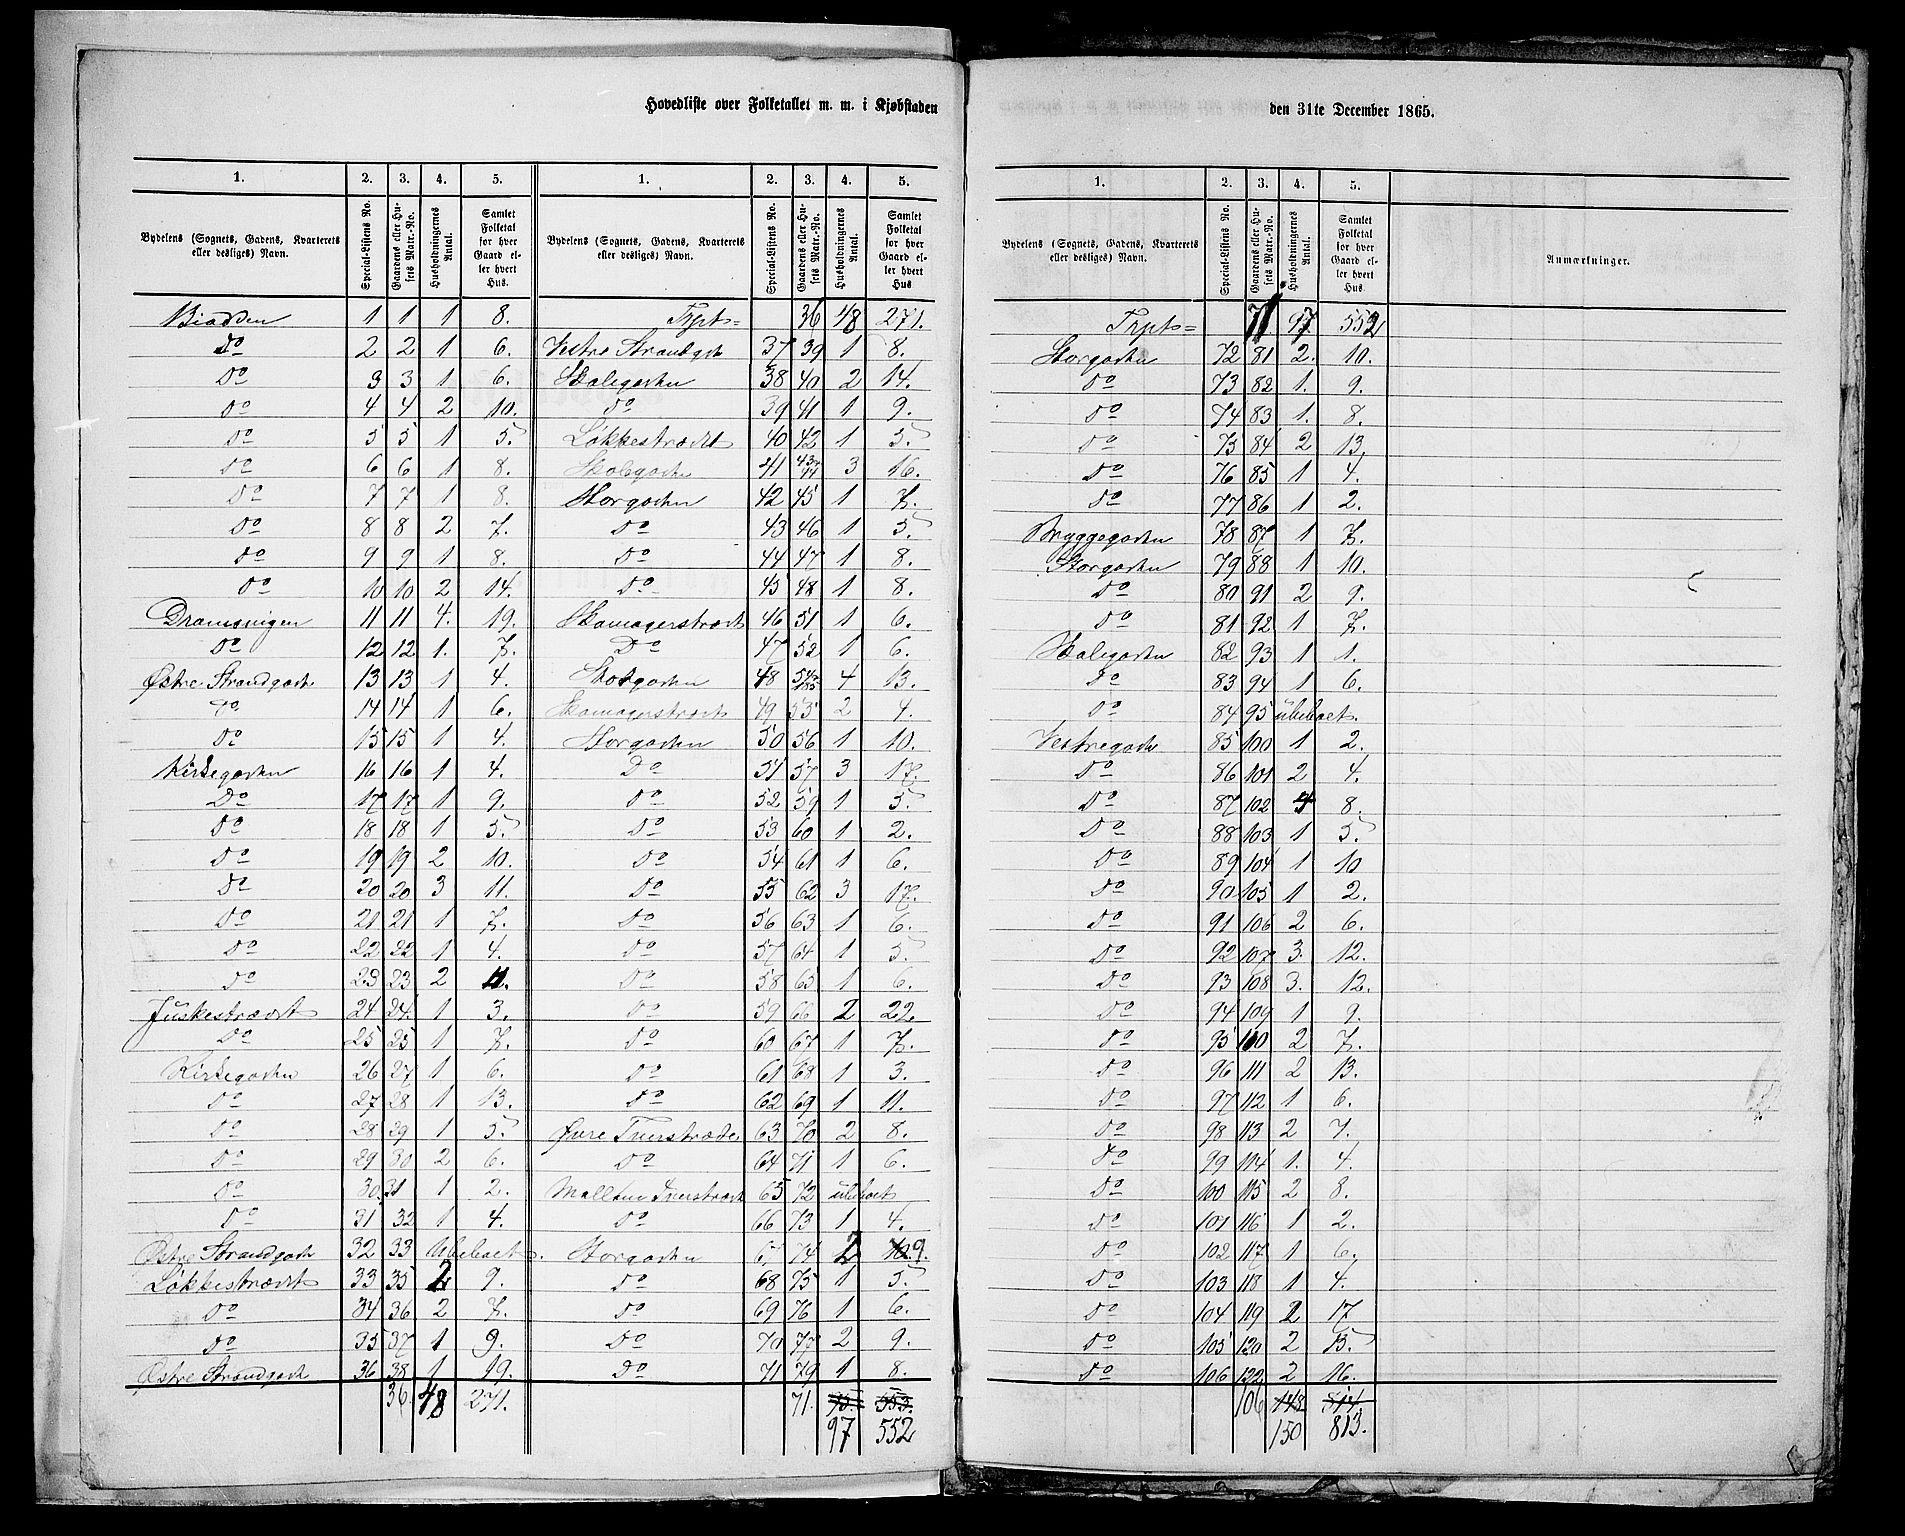 Hovedliste over Folketallet m. m. i Kjøbstaden
1. 2. 3. 4. 5. 1. 2. 3. 4. 5.
Bydelens (Sognets, Gadens, Kvarterets eller desliges) Navn. Special-Listens No. Gaardens eller Husets Matr.-No. Husholdningernes Antal. Samlet Folketal for hver Gaard eller hvert Hus. Bydelens (Sognets, Gadens, Kvarterets eller desliges) Navn. Special-Listens No. Gaardens eller Husets Matr.-No. Husholdningernes Antal. Samlet Folketal for hver Gaard eller hvert Hus
Biodden 1 1 1 8. Trpt= 36 48 271.
Do 2 2 1 6. Vestre Strandgade 37 39 1 8.
Do 3 3 1 6. Skolegaden 38 40 2 14.
Do 4 4 2 10. Do 39 41 1 9.
Do 5 5 1 5. Løkkestrædet 40 42 1 5.
Do 6 6 1 8. Skolegaden 41 43 44 3 16.
Do 7 7 1 8. Storgaden 42 45 1 7.
Do 8 8 2 7. Do 43 46 1 5.
Do 9 9 1 8. Do 44 47 1 8.
Do 10 10 2 14. Do 45 48 1 8.
Dramsvigen 11 11 4. 19. Skomagerstrædet 46 51 1 6.
Do 12 12 1. 7. Do 47 52 1 6.
Østre Strandgade 13 13 1 4. Storgaden 48 54 4 13.
Do 14 14 1 6. Skomagerstrædet 49 55 2 4.
Do 15 15 1 4. Storgaden 50 56 1 10.
Kirkegaden 16 16 1 4. Do 51 57 3 17.
Do 17 17 1 9. Do 52 59 1 5.
Do 18 18 1 5. Do 53 60 1 2.
Do 19 19 2 10. Do 54 61 1 6.
Do 20 20 3 11. Do 55 62 3 17.
Do 21 21 1 7. Do 56 63 1 6.
Do 22 22 1 4. Do 57 64 1 5.
Do 23 23 2 11. Do 58 65 1 6.
Juskestrædet 24 24. 1 3. Do 59 66 2 22.
Do 25 25 1 7. Do 60 67 1 7.
Kirkegaden 26 27 1 6. Do 61 68 1 3.
Do 27 28 1 13. Do 62 69 1 11.
Do 28 29 1 5. Øvre Tverstræde 63 70 2 8.
Do 29 30 2 6. Do 64 71 1 6.
Do 30 31 1 2. Tverstræde 65 72 ubeboet
Do 31 32 1 4. Do 66 73 1 4.
Østre Strandgade 32 33 Ubeboet. Storgaden 67 74 2 10 9.
Løkkestrædet 33 35 2 9. Do 68 75 1 5.
Do 34 36 2 7. Do 69 76 1 6.
Do 35 37 1 9. Do 70 77 2 9.
Østre Strandgade 36 38 1 19. Do 71 79 1 8.
36. 48 271. 71. 95. 553.
97 552
den 31te December 1865.
1. 2. 3. 4. 5.
Bydelens (Sognets, Gadens, Kvarterets eller desliges) Navn. Special-Listens No. Gaardens eller Husets Matr.-No. Husholdningernes Antal. Samlet Folketal for hver Gaard eller hvert Hus. Anmærkninger.
Trpt= 71 97 552
Storgaden 72 81 2. 10.
Do 73 82 1. 9.
Do 74 83 1. 8.
Do 75 84 2 13.
Do 76 85 1 4.
Do 77 86 1 2.
Bryggegaden 78 87 1 7.
Storgaden 79 88 1 10.
Do 80 91 2 9.
Do 81 92 1 7.
Skolegaden 82 93 1 1.
Do 83 94 1 6.
Do 84 95 ubeboet.
Vestregade 85 100 1 2.
Do 86 101 2 4.
Do 87 102 4 8.
Do 88 103 1 5
Do 89 104 1 10
Do 90 105 1 2.
Do 91 106 2 6.
Do 92 107 3. 12.
Do 93 108 3. 12.
Do 94 109 1 9.
Do 95 110 2 7.
Do 96 111 2 13.
Do 97 112 1 6.
Do 98 113 2 7.
Do 99 114 1. 4.
Do 100 115 2 8.
Do 101 116 1 2.
Do 102 117 1 6.
Do 103 118 1 4.
Do 104 119 2 17
Do 105 120 2 15.
Do 106 122 2 16.
106 148 814.
150 813.